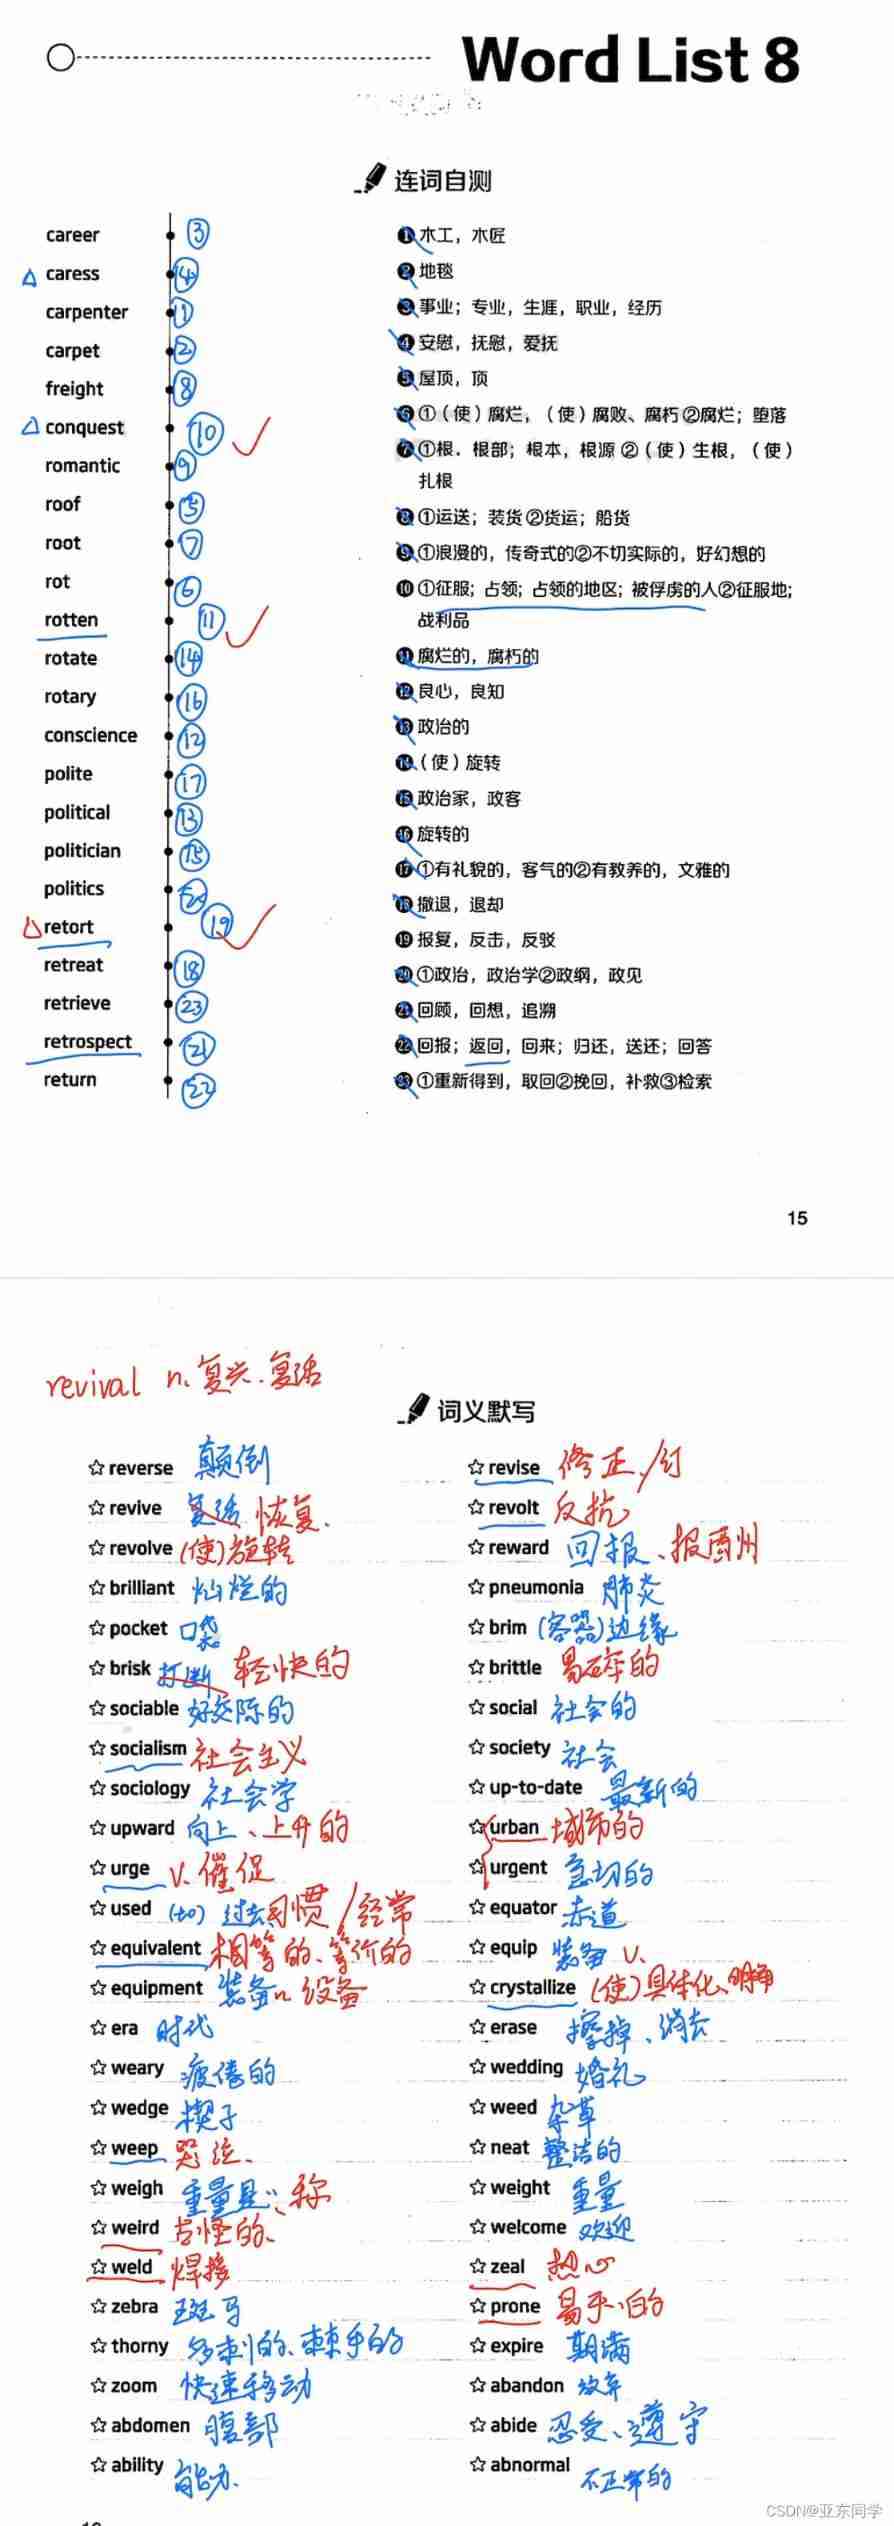 Word List 8
连词自测
career ③ ❶木工，木匠
caress ④ ❷地毯
carpenter ① ❸事业；专业，生涯，职业，经历
carpet ② ❹安慰，抚慰，爱抚
freight ⑧ ❺屋顶，顶
conquest ⑩ ❻①（使）腐烂，（使）腐败、腐朽②腐烂；堕落
romantic ⑨ ❼①根．根部；根本，根源②（使）生根，（使）
扎根
roof ⑤ ❽①运送；装货②货运；船货
root ⑦ ❾①浪漫的，传奇式的②不切实际的，好幻想的
rot ⑥ ❿①征服；占领；占领的地区；被俘虏的人②征服地；
战利品
rotten ⑪ ⓫腐烂的，腐朽的
rotate ⑭ ⓬良心，良知
rotary ⑯ ⓭政治的
conscience ⑫ ⓮（使）旋转
polite ⑰ ⓯政治家，政客
political ⑬ ⓰旋转的
politician ⑮ ⓱①有礼貌的，客气的②有教养的，文雅的
politics ⑳ ⓲撤退，退却
retort ⑲ ⓳报复，反击，反驳
retreat ⑱ ⓴①政治，政治学②政纲，政见
retrieve ㉓ ㉑回顾，回想，追溯
retrospect ㉑ ㉒回报；返回，回来；归还，送还；回答
return ㉒ ㉓①重新得到，取回②挽回，补救③检索
15
revival n、复兴．复活
词义默写
☆reverse 颠倒 ☆revise 修正／订
☆revive 复活 恢复、 ☆revolt 反抗
☆revolve (使)旋转 ☆reward 回报、报酬
☆brilliant 灿烂的 ☆pneumonia 肺炎
☆pocket 口袋 ☆brim (容器)边缘
☆brisk 打断 轻快的 ☆brittle 易碎的
☆sociable 好交际的 ☆social 社会的
☆socialism 社会主义 ☆society 社会
☆sociology 社会学 ☆up-to-date 最新的
☆upward 向上、上升的 ☆urban 城市的
☆urge v.催促 ☆urgent 急切的
☆used (to) 过去习惯／经常 ☆equator 赤道
☆equivalent 相等的、等价的 ☆equip 装备 v.
☆equipment 装备n 设备 ☆crystallize (使)具体化、明确
☆era 时代 ☆erase 擦掉、消去
☆weary 疲倦的 ☆wedding 婚礼
☆wedge 楔子 ☆weed 杂草
☆weep 哭泣、 ☆neat 整洁的
☆weigh 重量是…、称 ☆weight 重量
☆weird 古怪的、 ☆welcome 欢迎
☆weld 焊接 ☆zeal 热心
☆zebra 斑马 ☆prone 易于…的
☆thorny 多刺的、棘手的 ☆expire 期满
☆zoom 快速移动 ☆abandon 放弃
☆abdomen 腹部 ☆abide 忍受、遵守
☆ability 能力、 ☆abnormal 不正常的
CSDN@亚东同学